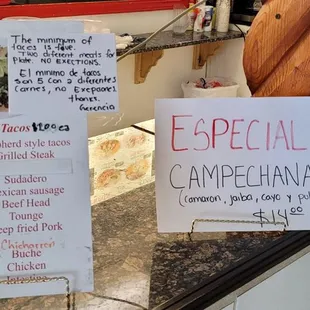 The minimum of
tacos is five.
Two different meats for
plate. NO EXECTIONS.
El minimo de tacos
son 5 con 2 diferentes
carnes, no exepciones
Gerencia
Tacos
herd style tacos
Grilled Steak
Sudadero
exican sausage
Beef Head
Tounge
eep fried Pork
Chicharron
Buche
Chicken
Intestine
ESPECIAL
CAMPECHANA
(camaron, jaiba, cayo y pul
$14.00